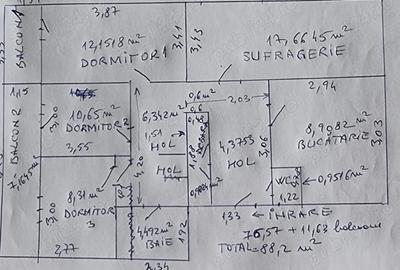 3,87
BALCON 1
12,1518 m²
DORMITOR 1
3,41
3,43
17,6645 m²
SUFRAGERIE
1,15
BALCON 2
3,00
10,65 m²
DORMITOR 2
3,55
6,342 m²
1,51
HOL
HOL
4,20
0,6 m²
0,6
2,03
1,88
4,3753
HOL
3,06
2,94
8,9082 m²
BUCATARIE
3,03
8,31 m²
DORMITOR
3
3,00
2,77
4,492 m²
BAIE
1,92
2,34
WC
0,9516 m²
1,22
1,33
INRARE
76,57 + 11,63 balcoane
TOTAL = 88,2 m²